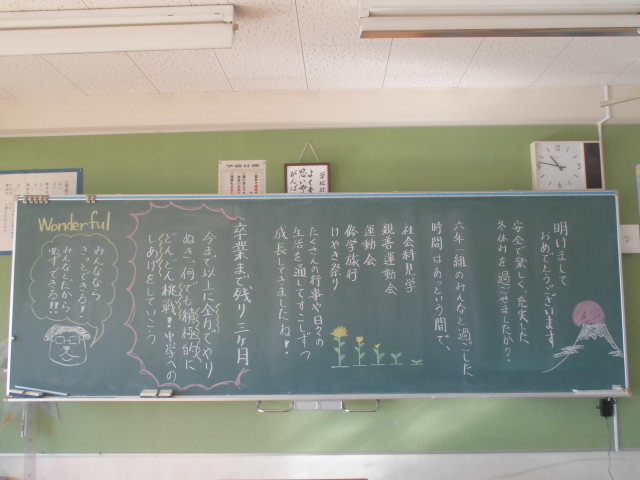 明けまして
おめでとうございます
安全で楽しく、充実した
冬休みを過ごせましたか？
六年一組のみんなと過ごした
時間はあっという間で、
社会科見学
親善運動会
運動会
修学旅行
けやき祭り
たくさんの行事や日々の
生活を通してすこしずつ
成長してきましたね！
卒業まで残り三ヶ月
今まで以上に全力でやり
ぬき、何でも積極的に
どんどん挑戦！中学への
しあげをしていこう
Wonderful
みんななら
きっとできる！
みんなとだから
できる！！
学級目標